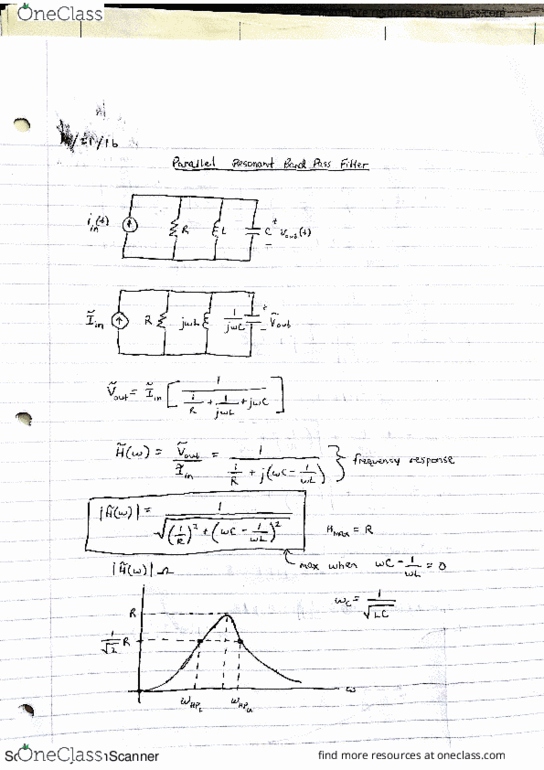 OneClass
find more resources at oneclass.com
/21/16
Parallel Resonant Band Pass Filter
i_in(t) R L C + v_out(t) -
Ĩ_in R jωL 1/jωC + Ṽ_out -
Ṽ_out = Ĩ_in [ 1 / (1/R + 1/jωL + jωC) ]
H̃(ω) = Ṽ_out / Ĩ_in = 1 / (1/R + j(ωC - 1/ωL)) } frequency response
|H̃(ω)| = 1 / √((1/R)² + (ωC - 1/ωL)²) H_MAX = R
max when ωC - 1/ωL = 0
|H̃(ω)| Ω
ω_c = 1/√LC
R
1/√2 R
ω_HP_L ω_HP_U ω
OneClass
Scanner
find more resources at oneclass.com